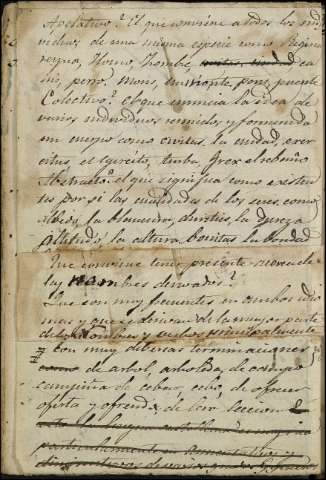 Apelativo? El que conviene a todos los indi
viduos de una misma especie como Regina
reyna, Homo, hombre,
perro. Mons, un monte, pons, puente
Colectivo? el que enuncia la idea de
varios individuos reunidos y formando
un cuerpo como civitas, la ciudad, exer
citus, el Egercito, turba, Grex el rebaño
Abstracto? el que significa como existen
tes por si las cualidades de los seres, como
la blancura, durities, la dureza
Altitudo, la altura, bonitas la bondad
Que conviene tener presente acerca de
los nombres derivados?
Que son muy frecuentes en ambos idio
mas y que se derivan de la mayor parte
de los Nombres y verbos principalmente
con muy diversas terminaciones
como de arbol, arboleda, de campo
campiña de cebar, cebo, de ofrecer
oferta y ofrenda de leer leccion